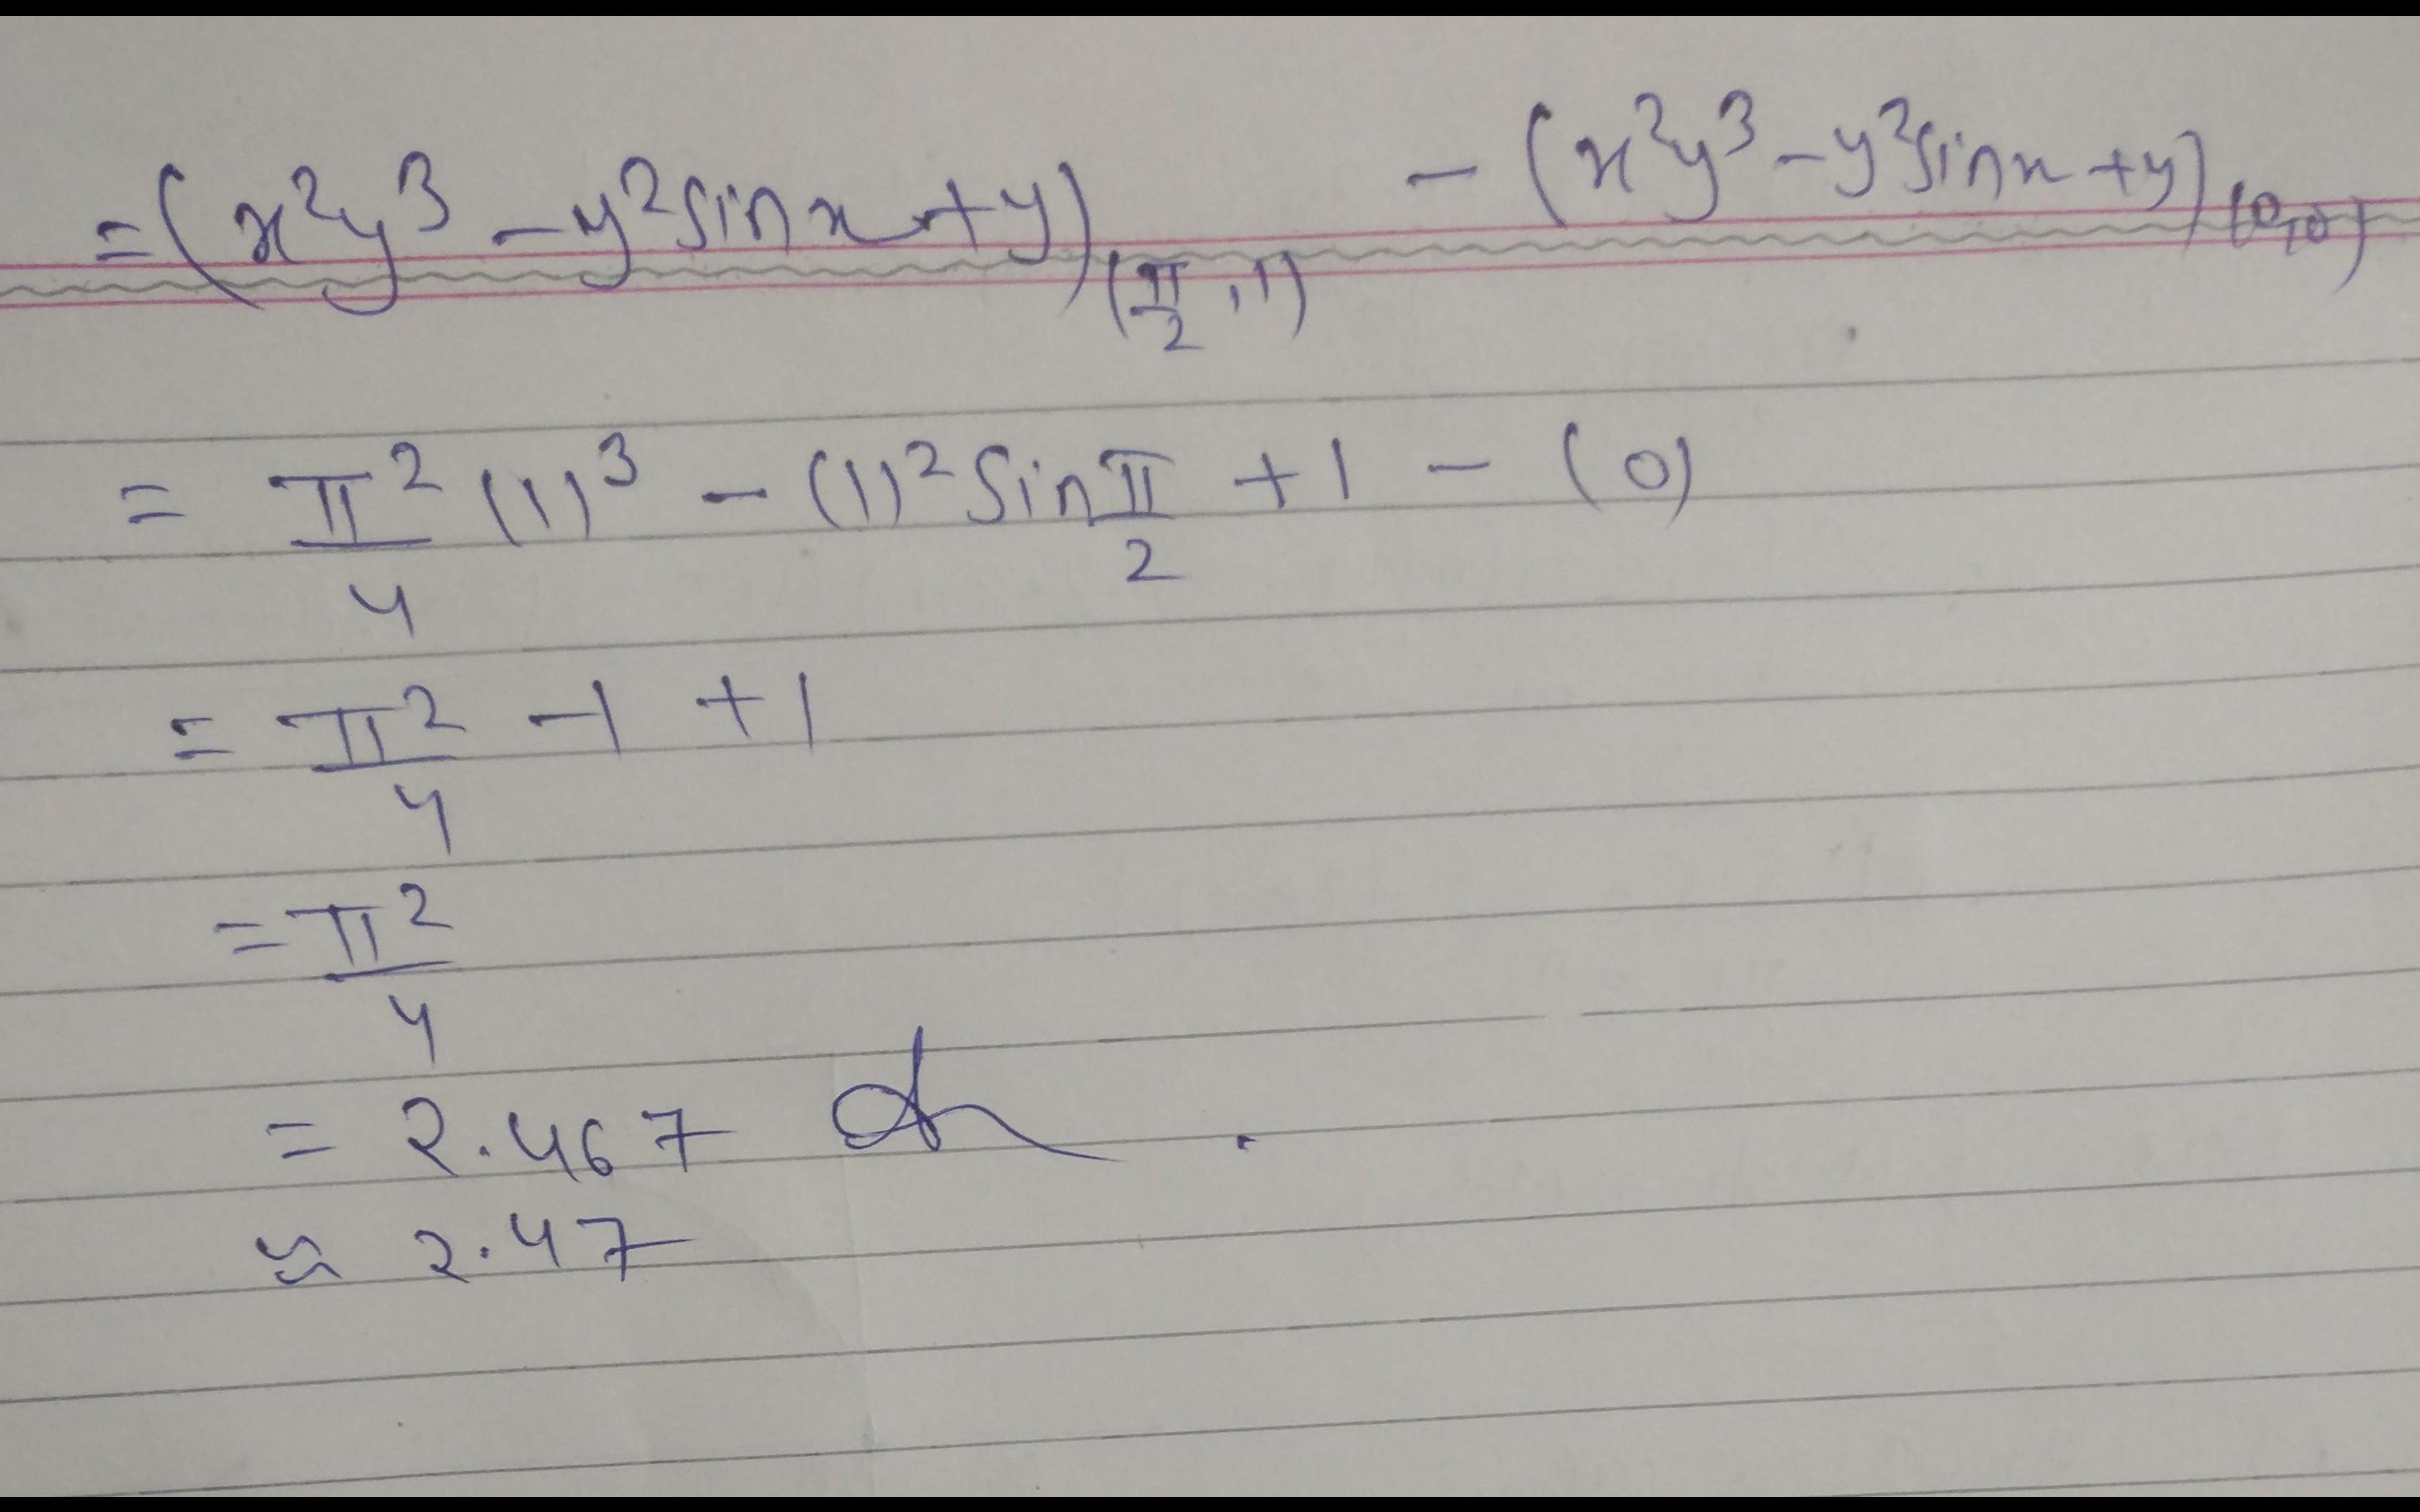 = (x²y³ - y² sin x + y)(π/2, 1) - (x²y³ - y² sin x + y)(0,0)
= π²/4 (1)³ - (1)² sin π/2 + 1 - (0)
= π²/4 - 1 + 1
= π²/4
= 2.467
≈ 2.47